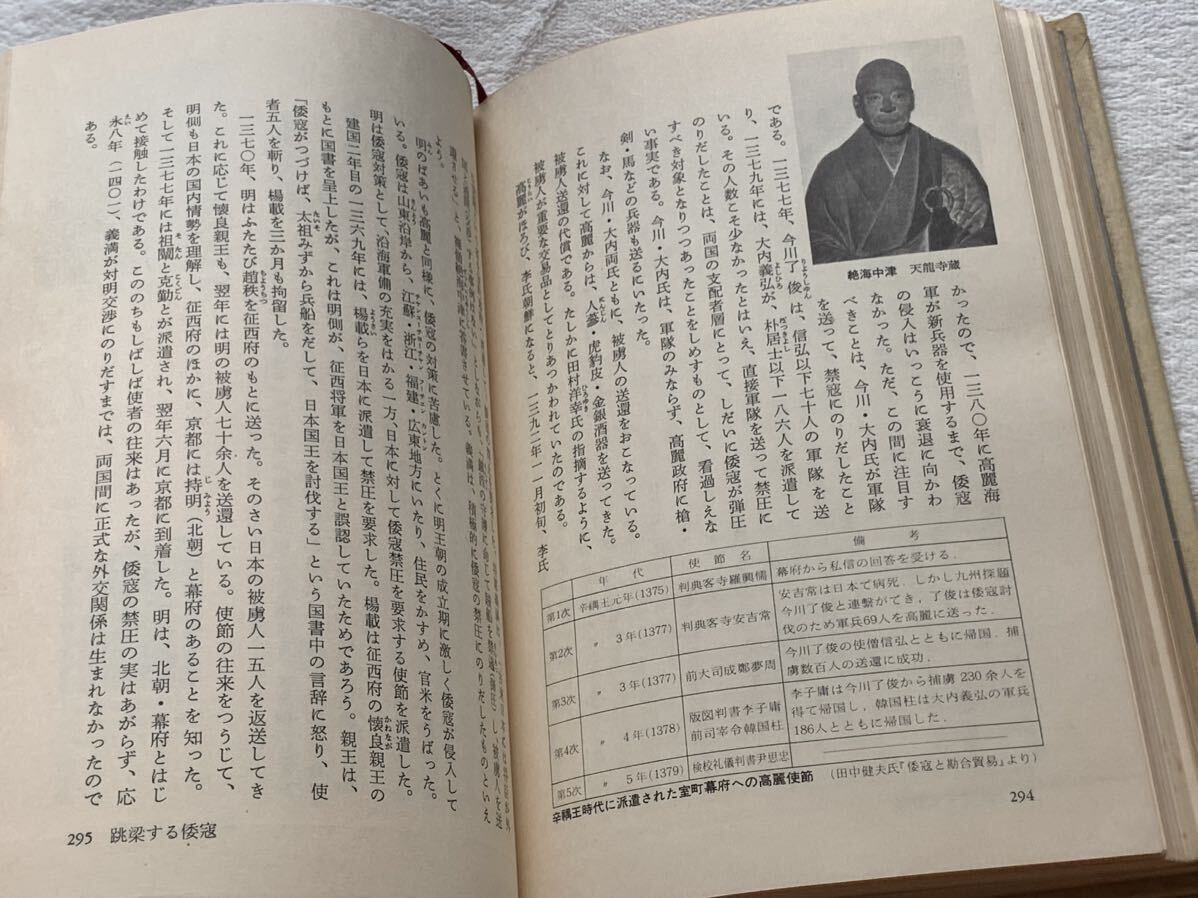 絶海中津　天龍寺蔵
かったので、一三八〇年に高麗海
軍が新兵器を使用するまで、倭寇
の侵入はいっこうに衰退に向かわ
なかった。ただ、この間に注目す
べきことは、今川・大内氏が軍隊
を送って、禁寇にのりだしたこと
である。一三七七年、今川了俊は、信弘以下七十人の軍隊を送
り、一三七九年には、大内義弘が、朴居士以下一八六人を派遣して
いる。その人数こそ少なかったとはいえ、直接軍隊を送って禁圧に
のりだしたことは、両国の支配者層にとって、しだいに倭寇が弾圧
すべき対象となりつつあったことをしめすものとして、看過しえな
い事実である。今川・大内氏は、軍隊のみならず、高麗政府に槍・
剣・馬などの兵器も送るにいたった。
なお、今川・大内両氏ともに、被虜人の送還をおこなっている。
これに対して高麗からは、人蔘・虎豹皮・金銀酒器を送ってきた。
被虜人送還の代償である。たしかに田村洋幸氏の指摘するように、
被虜人が重要な交易品としてとりあつかわれていたのである。
高麗がほろび、李氏朝鮮になると、一三九二年一一月初旬、李氏
年代　使節名　備考
第1次　辛禑王元年(1375)　判典客寺羅興儒　幕府から私信の回答を受ける．
第2次　〃 3年(1377)　判典客寺安吉常　安吉常は日本で病死．しかし九州探題
今川了俊と連繫ができ，了俊は倭寇討
伐のため軍兵69人を高麗に送った．
第3次　〃 3年(1377)　前大司成鄭夢周　今川了俊の使僧信弘とともに帰国．捕
虜数百人の送還に成功．
第4次　〃 4年(1378)　版図判書李子庸
前司宰令韓国柱　李子庸は今川了俊から捕虜 230 余人を
得て帰国し，韓国柱は大内義弘の軍兵
186人とともに帰国した．
第5次　〃 5年(1379)　検校礼儀判書尹思忠
辛禑王時代に派遣された室町幕府への高麗使節　（田中健夫氏『倭寇と勘合貿易』より）
294
絶海中津に答書させている。義満は、積極的に倭寇の禁圧にのりだしたものといえ
よう。
明のばあいも高麗と同様に、倭寇の対策に苦慮した。とくに明王朝の成立期に激しく倭寇が侵入して
いる。倭寇は山東沿岸から、江蘇・浙江・福建・広東地方にいたり、住民をかすめ、官米をうばった。
明は倭寇対策として、沿海軍備の充実をはかる一方、日本に対して倭寇禁圧を要求する使節を派遣した。
建国二年目の一三六九年には、楊載らを日本に派遣して禁圧を要求した。楊載は征西府の懐良親王の
もとに国書を呈上したが、これは明側が、征西将軍を日本国王と誤認していたためであろう。親王は、
「倭寇がつづけば、太祖みずから兵船をだして、日本国王を討伐する」という国書中の言辞に怒り、使
者五人を斬り、楊載を三か月も拘留した。
一三七〇年、明はふたたび趙秩を征西府のもとに送った。そのさい日本の被虜人一五人を返送してき
た。これに応じて懐良親王も、翌年には明の被虜人七十余人を送還している。使節の往来をつうじて、
明側も日本の国内情勢を理解し、征西府のほかに、京都には持明（北朝）と幕府のあることを知った。
そして一三七七年には祖闡と克勤とが派遣され、翌年六月に京都に到着した。明は、北朝・幕府とはじ
めて接触したわけである。こののちもしばしば使者の往来はあったが、倭寇の禁圧の実はあがらず、応
永八年（一四〇一）、義満が対明交渉にのりだすまでは、両国間に正式な外交関係は生まれなかったので
ある。
295　跳梁する倭寇